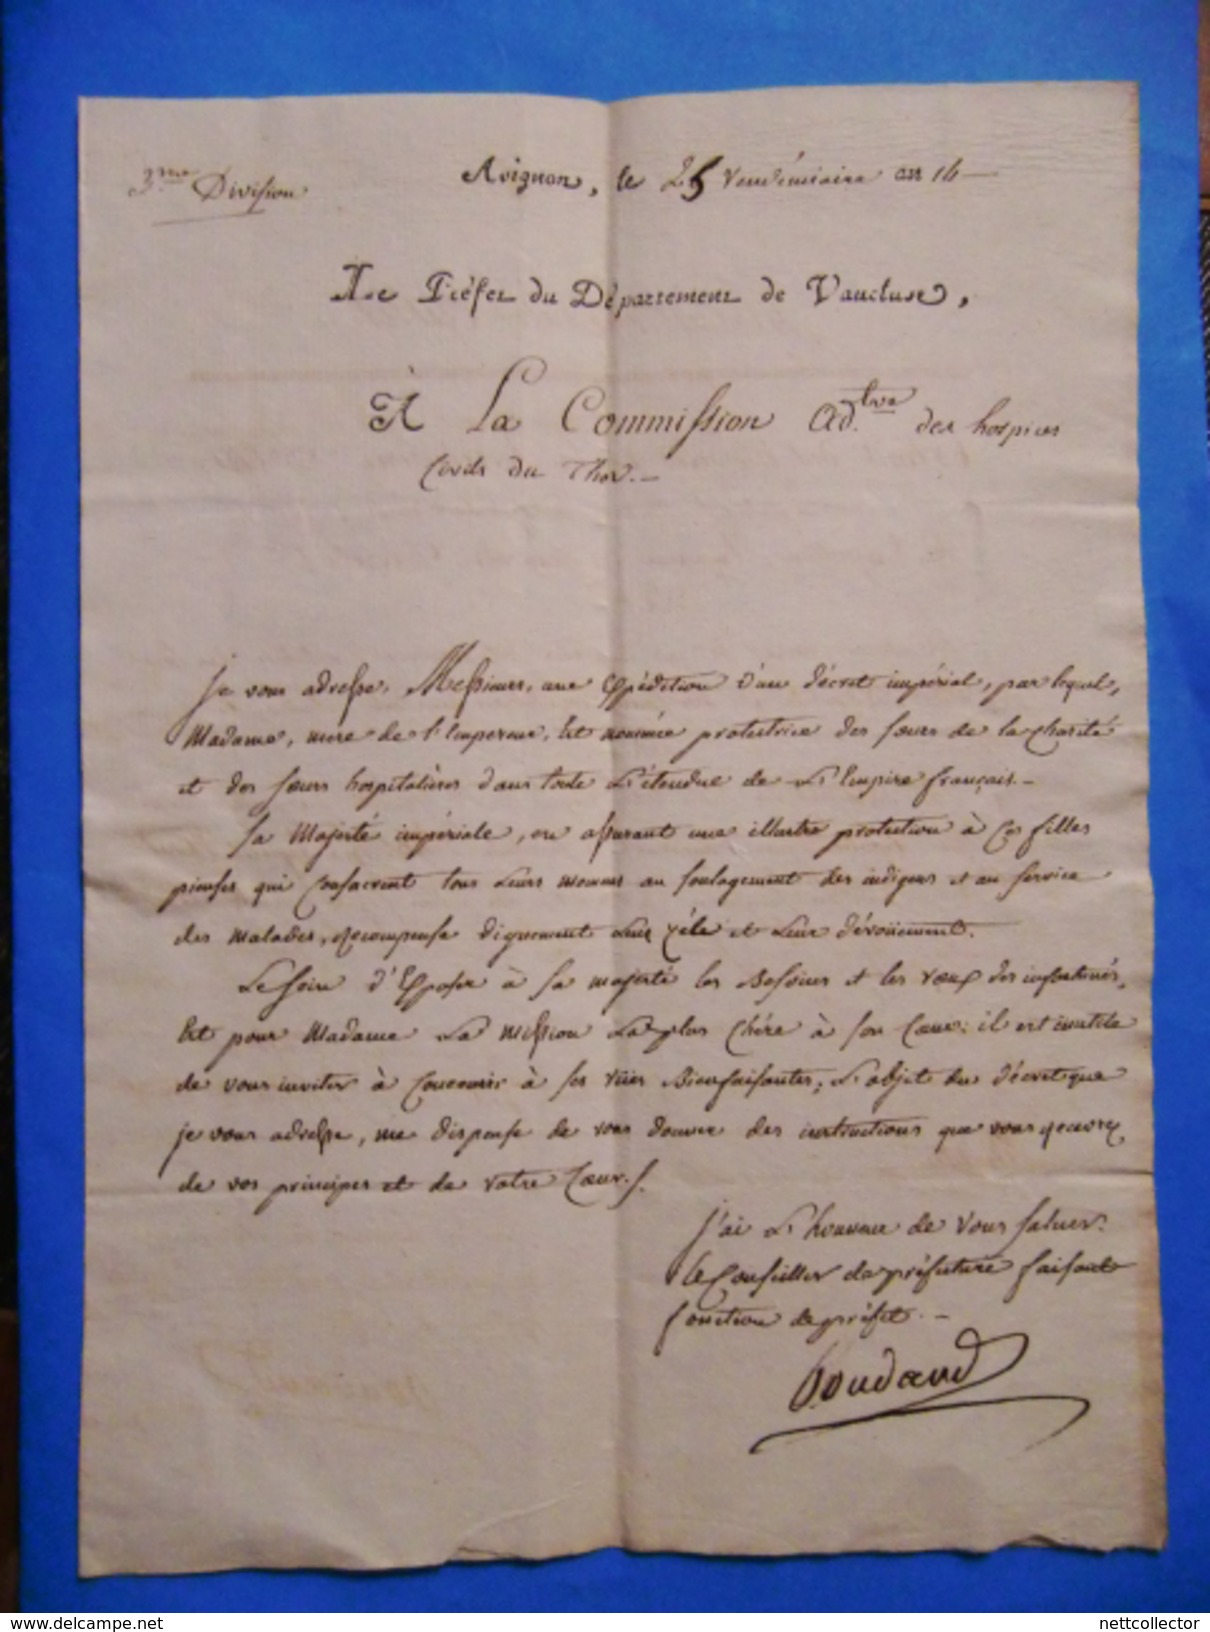 3.me Division
Avignon, le 25 Vendémiaire an 14 —
Le Préfet du Département de Vaucluse,
À La Commission Ad.tve des hospices
Civils du Thor. —
Je vous adresse, Messieurs, une Expédition d'un décret impérial, par lequel,
Madame, mere de l'Empereur, Est nommée protectrice des sœurs de la Charité
et des sœurs hospitalières dans toute L'étendue de L'Empire français. —
Sa Majesté impériale, en assurant une illustre protection à Ces filles
pieuses qui Consacrent tous Leurs momens au soulagement des indigens et au service
des malades, Recompense dignement Leur Zèle et Leur dévoüement.
Le Soin d'Exposer à Sa majesté les Besoins et les vœux des infortunés,
Est pour Madame La Mission La plus Chère à son Cœur; il est inutile
de vous inviter à Concourir à ses vües Bienfaisantes; L'objet du décret que
je vous adresse, me dispense de vous donner des instructions que vous Recevrez
de vos principes et de votre Cœur./.
J'ai L'honneur de Vous Saluer.
Le Conseiller de préfecture faisant
fonction de préfet. —
delcampe.net
nettcollector